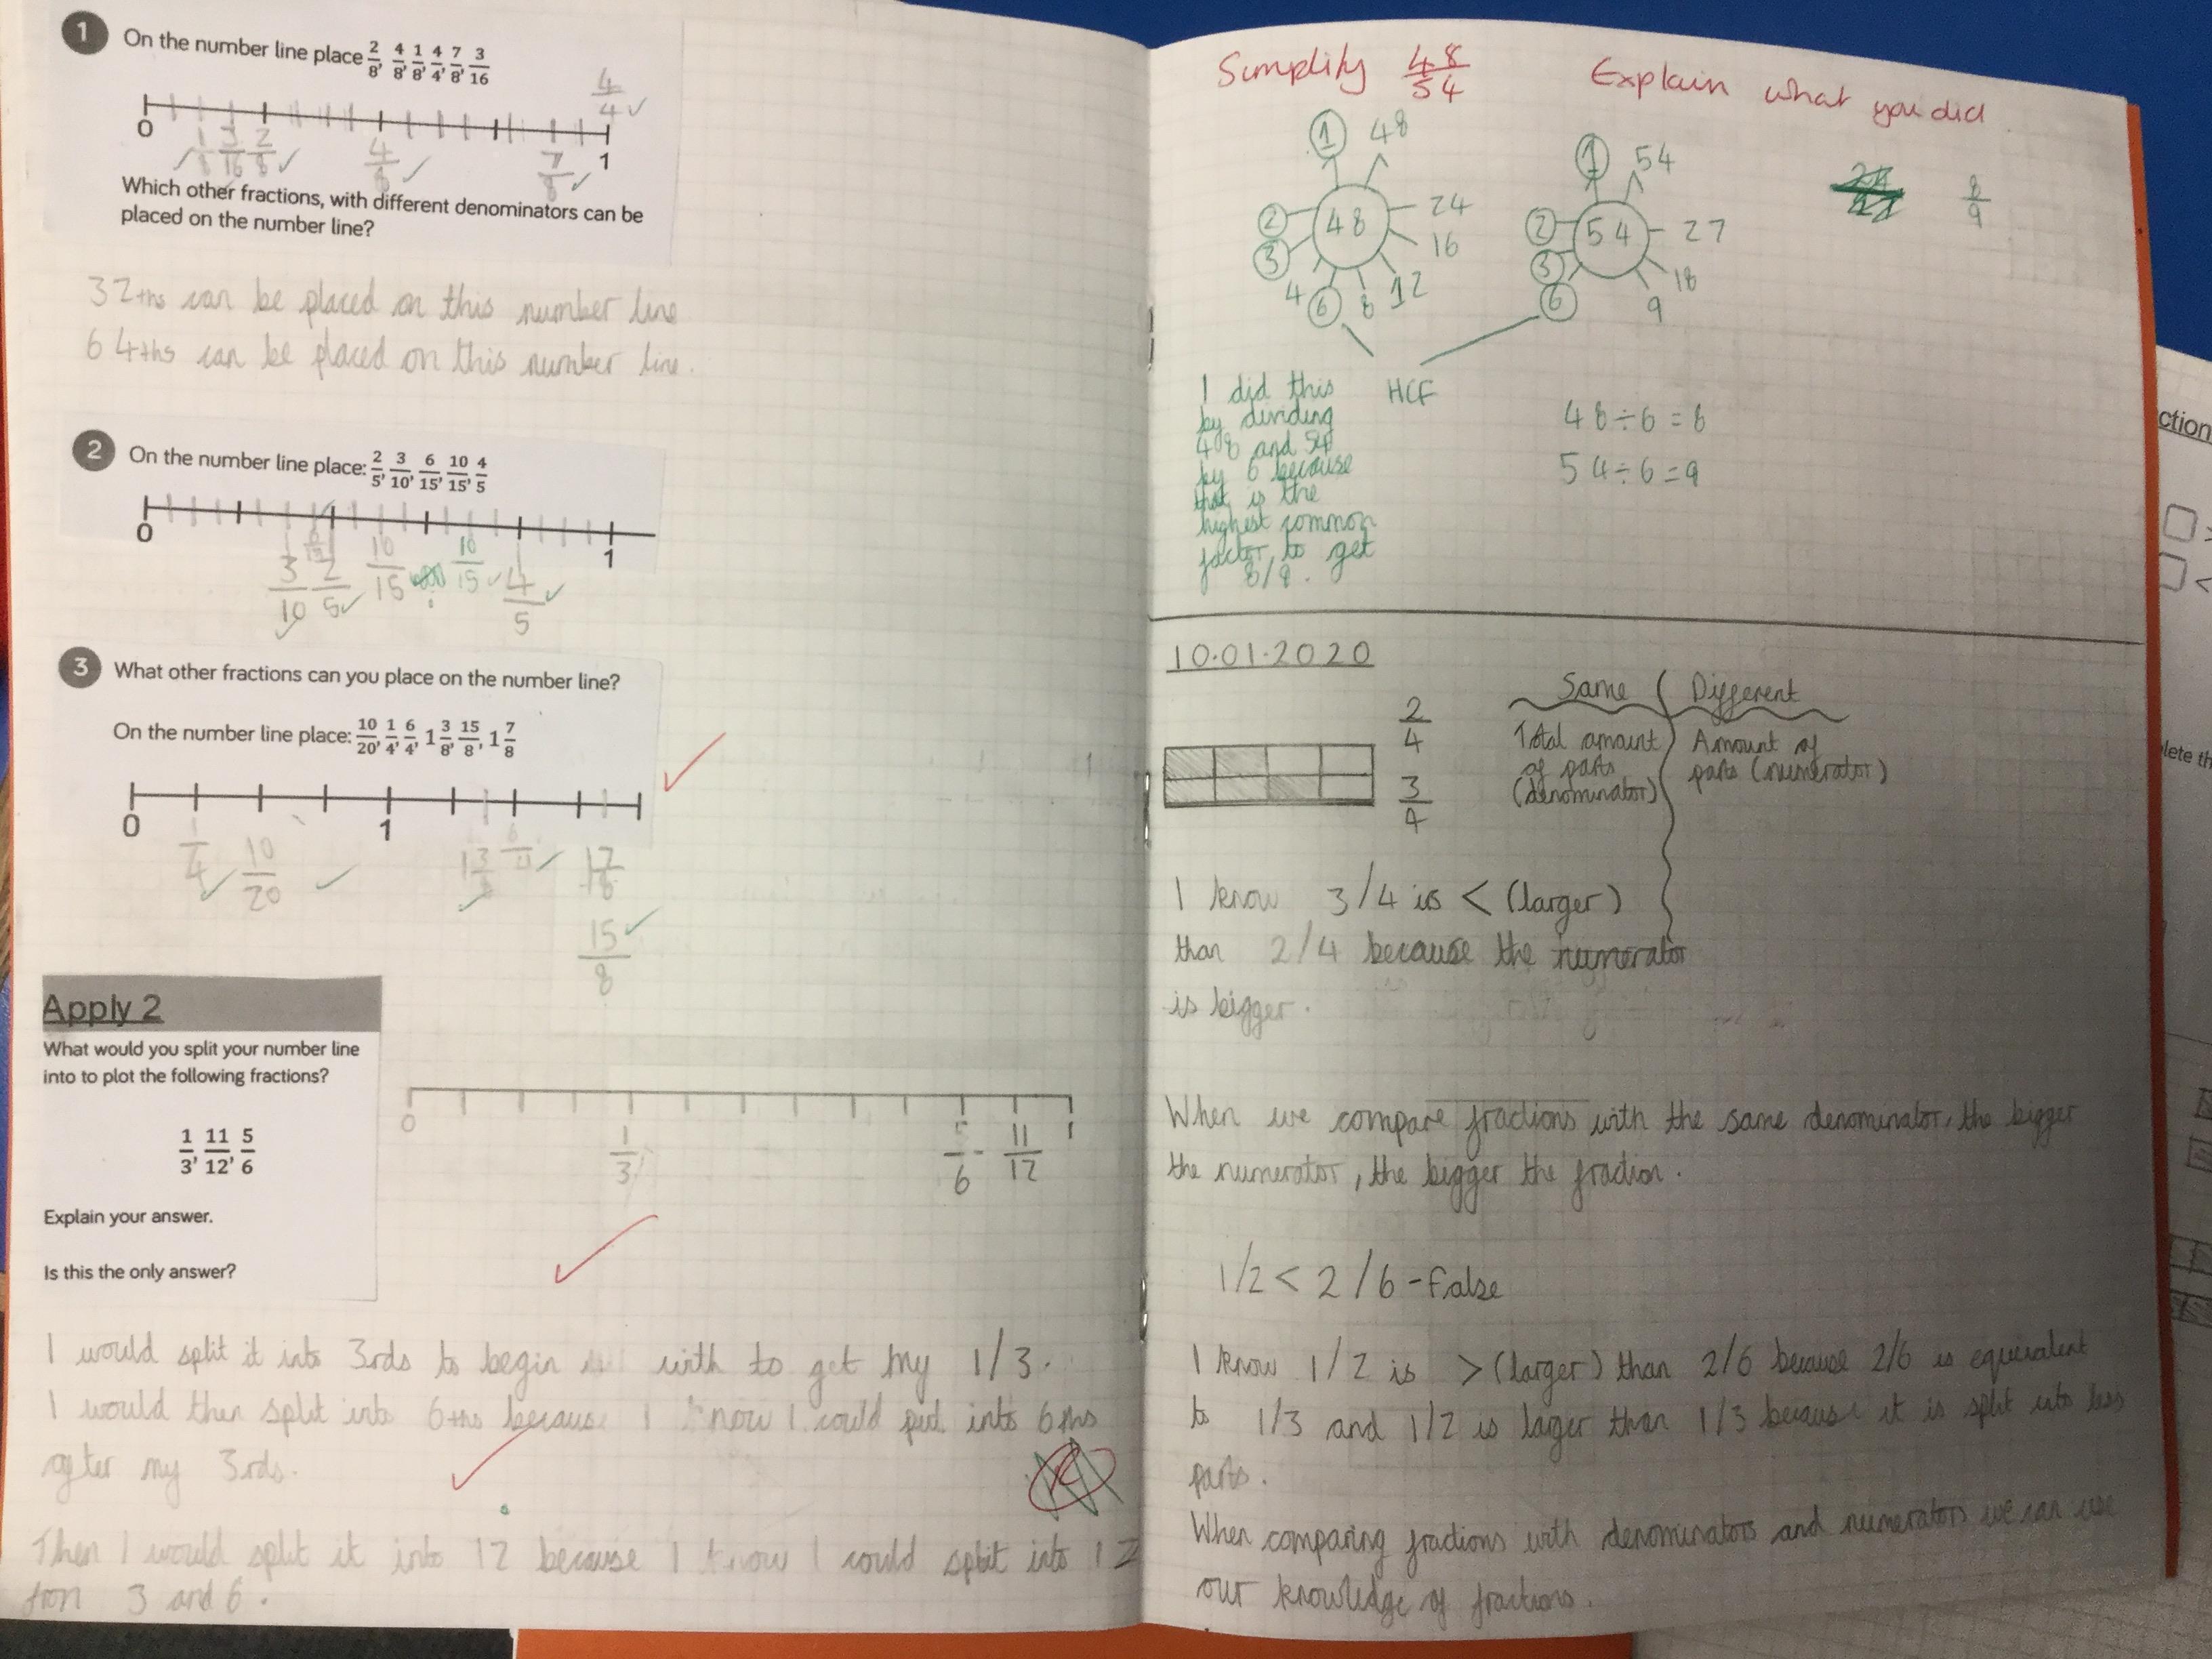 1 On the number line place 2/8, 4/8, 1/8, 4/4, 7/8, 3/16
4/4
0
1/8 3/16 2/8 4/8 7/8 1
Which other fractions, with different denominators can be
placed on the number line?
32ths can be placed on this number line
64ths can be placed on this number line.
2 On the number line place: 2/5, 3/10, 6/15, 10/15, 4/5
0 1
3/10 2/5 10/15 10/15 4/5
3 What other fractions can you place on the number line?
On the number line place: 10/20, 1/4, 6/4, 1 3/8, 15/8, 1 7/8
0 1
1/4 10/20 1 3/8 6/4 1 7/8
15/8
Apply 2
What would you split your number line
into to plot the following fractions?
1/3, 11/12, 5/6
Explain your answer.
Is this the only answer?
0 1/3 5/6 11/12 1
I would split it into 3rds to begin with to get my 1/3.
I would then split into 6ths because I know I could put into 6ths
after my 3rds.
Then I would split it into 12 because I know I could split into 12
3 and 6.
Simplify 48/54 Explain what you did
1 48
2 48 24
3 16
4 6 8 12
1 54
2 54 27
3 18
6 9
8/9
HCF
I did this
by dividing
48 and 54
by 6 because
that is the
highest common
factor, to get
8/9.
48÷6=8
54÷6=9
10.01.2020
2/4
3/4
Same Different
Total amount
of parts
(denominator)
Amount of
parts (numerator)
I know 3/4 is < (larger)
than 2/4 because the numerator
is bigger.
When we compare fractions with the same denominator, the bigger
the numerator, the bigger the fraction.
1/2 < 2/6 - False
I know 1/2 is > (larger) than 2/6 because 2/6 is equivalent
to 1/3 and 1/2 is larger than 1/3 because it is split into less
parts.
When comparing fractions with denominators and numerators we can use
our knowledge of fractions.
ction
lete th